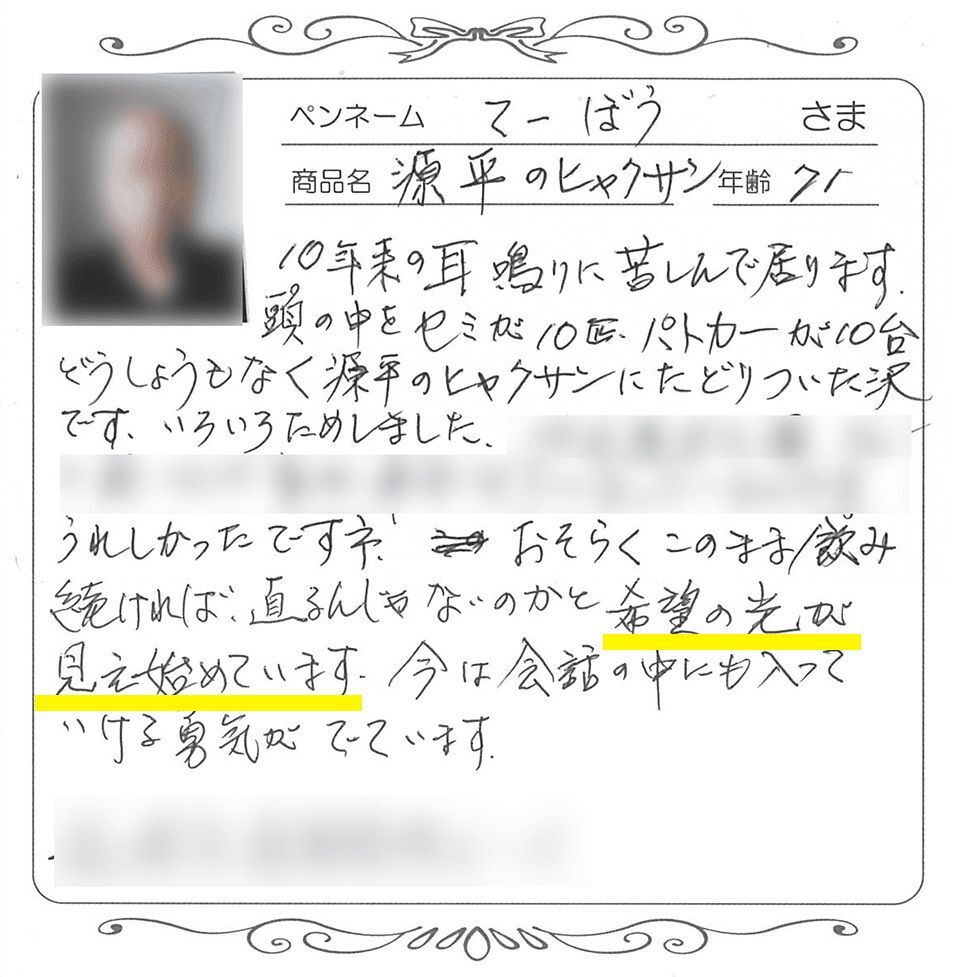 ペンネーム てーぼう さま
商品名 源平のヒャクサン 年齢 71
10年来の耳鳴りに苦しんで居ります.
頭の中をセミが10匹、パトカーが10台
どうしようもなく源平のヒャクサンにたどりついた訳
です、いろいろためしました、
うれしかったですネ! おそらくこのまま飲み
続ければ、直るんじゃないのかと希望の光が
見え始めています. 今は会話の中にも入って
いける勇気がでています.